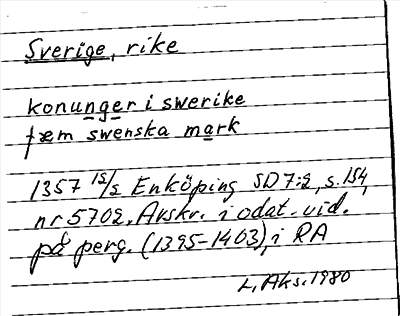 Sverige, rike
konunger i swerike
fæm swenska mark
1357 15/2 Enköping SD 7:2, s. 154,
nr 5702. Avskr. i odat. vid.
på perg. (1395-1403), i RA
L, Aks. 1980